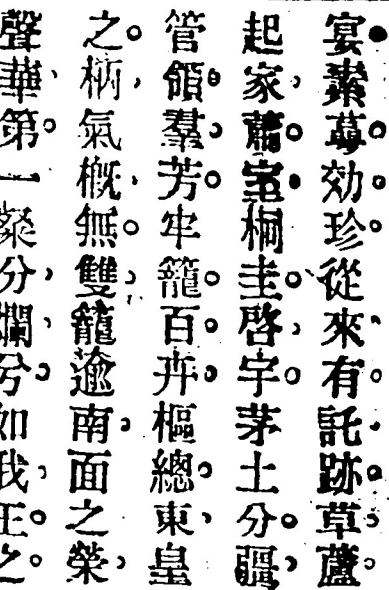 宴素蕚効珍。從來有託跡草蘆。
起家蕭室桐圭。啓宇。茅土分疆
管領羣芳。牢籠百卉。樞總東皇
之柄。氣概無雙。籠逾南面之榮
聲華第一。粲分爛兮。如我王之